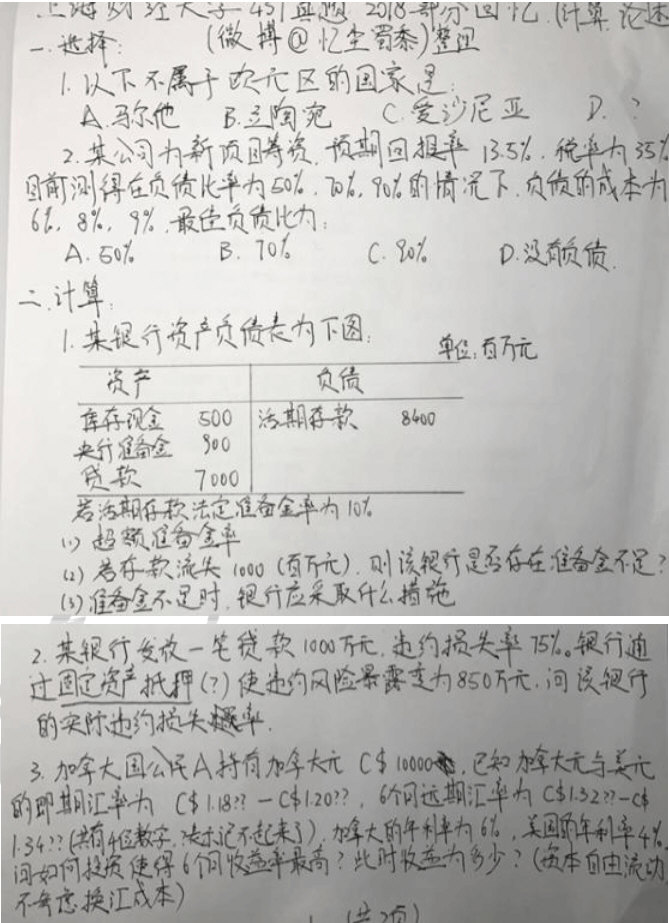 上海财经大学 431真题 2018部分回忆 (计算 论述
一.选择: (微博@忆尘蜀黍)整理
1.以下不属于欧元区的国家是:
A.马尔他 B.立陶宛 C.爱沙尼亚 D.?
2.某公司为新项目筹资,预期回报率13.5%,税率为35%
目前测得在负债比率为50%,70%,90%的情况下,负债的成本为
6%,8%,9%,最佳负债比为:
A.50% B.70% C.90% D.没有负债.
二.计算:
1.某银行资产负债表为下图: 单位:百万元
资产 负债
库存现金 500 活期存款 8400
央行准备金 900
贷款 7000
若活期存款法定准备金率为10%
(1)超额准备金率
(2)若存款流失1000(百万元),则该银行是否存在准备金不足?
(3)准备金不足时,银行应采取什么措施
2.某银行发放一笔贷款1000万元,违约损失率75%。银行通
过固定资产抵押(?)使违约风险暴露变为850万元,问该银行
的实际违约损失率.
3.加拿大国公民A持有加拿大元C$10000,已知加拿大元与美元
的即期汇率为C$1.18??-C$1.20??,6个月远期汇率为C$1.32??-C$
1.34??(共有4位数字,实在记不起来了),加拿大的年利率为6%,美国的年利率4%,
问如何投资使得6个月收益率最高?此时收益为多少?(资本自由流动
不考虑换汇成本)
(共2页)